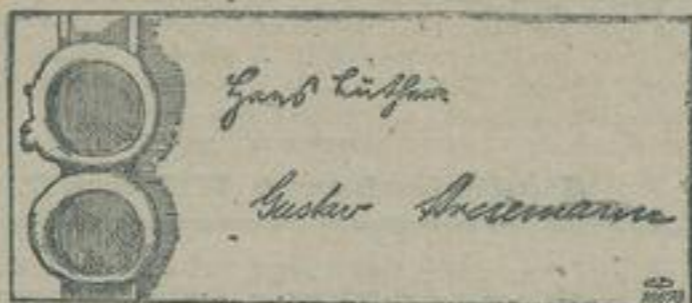 Hans Luther
Gustav Stresemann